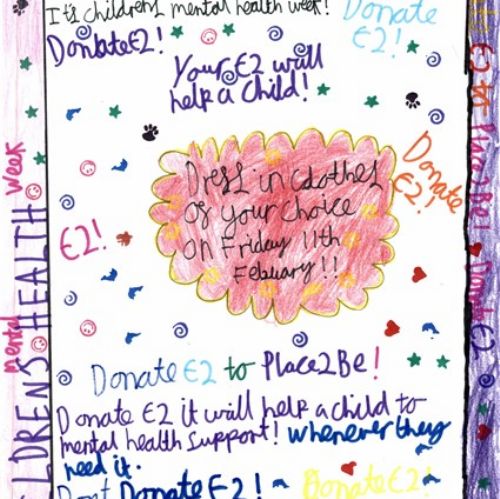 It's childrens mental health week!
Donate £2!
Donate £2!
Your £2 will
help a child!
Dress in clothes
of your choice
on Friday 11th
Febuary!!
Donate
£2!
£2!
Donate £2 to Place2Be!
Donate £2 it will help a child to
mental health support! whenever they
need it.
Donate £2!
Donate £2!
LDRENS HEALTH
mental week
£2 to Place2Be! Donate £2